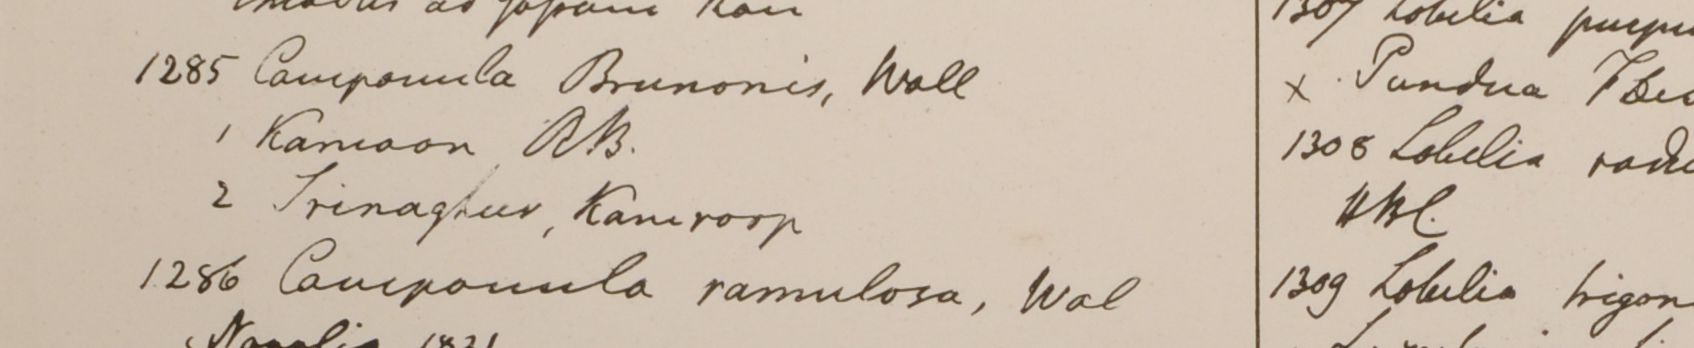 1285 Campanula Brunonis, Wall
1 Kamaon RB.
2 Srinaghur, Kamroop
1286 Campanula ramulosa, Wal
1821
1307 Lobelia
x Pundua
1308 Lobelia
HBC.
1309 Lobelia trigon